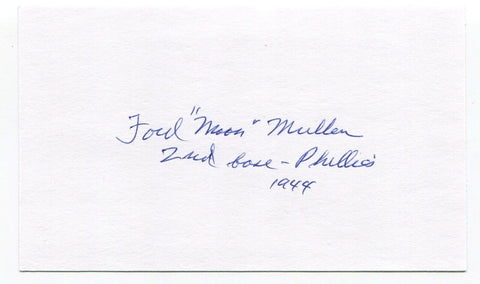 Ford "Moon" Mullen
2nd base - Phillies
1944